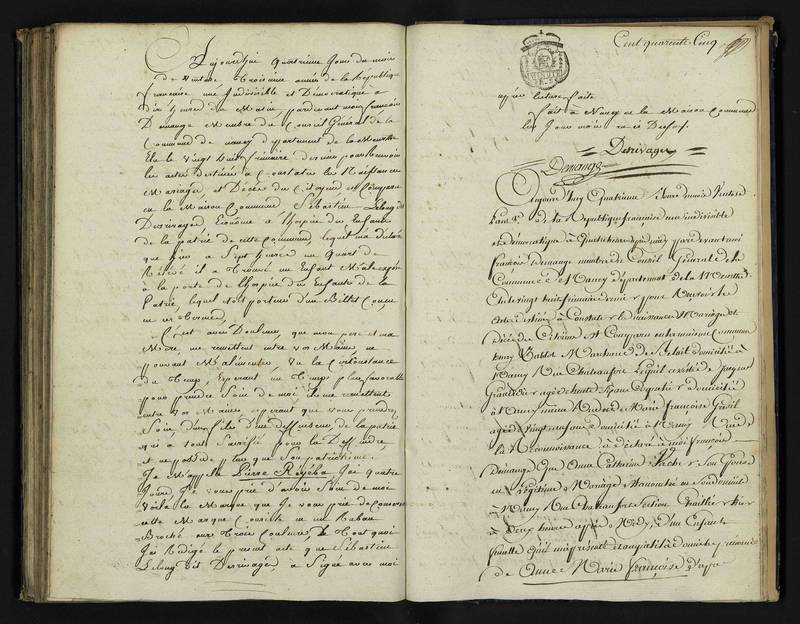 Aujourd'hui quatrieme Jour du mois
de Ventose troisieme année de la République
francaise une Indivisible et Démocratique a
dix heures du Matin, pardevant moi francois
Demange Membre du Conseil Général de la
Commune de nancy département de la Meurthe
Elu le Vingt huit frimaire dernier pour Recevoir
les actes destinés a Constater les Naissances
Mariages, et Décès des Citoyens est Comparu
en la Maison Commune Sébastien Lelong dit
Desrivages Econome a l'hospice des Enfans
de la patrie de cette Commune, lequel m'a déclaré
que hier a Sept heures un Quart de
Relevée il a trouvé un Enfant Mâle exposé
a la porte de l'hospice des Enfants de la
Patrie, lequel etoit porteur d'un Billet Conçu
en ces termes,
C'est avec Douleur, que mon pere et ma
Mere, me remettent entre vos Mains, ne
pouvant M'alimenter, vu la Circonstance
du tems, Esperant un temps plus favorable
pour prendre Soin de moi, ils me remettent
entre vos Mains, esperant que vous prendrez
Soin d'un fils d'un deffenseur de la patrie
qui a tout Sacrifié pour la Deffendre,
et ne possede plus que Son patriotisme.
Je M'appelle Pierre J'ai quatre
Jours Je vous prie d'avoir Soin de moi
Voila la Marque que Je vous prie de Conserver
cette Marque Consiste en un Ruban
Broché aux trois Couleurs, de tout quoi
J'ai Rédigé le présent acte que Sébastien
Lelong dit Desrivages, a Signé avec moi
Cent quarente Cinq
après lecture faite
fait a Nancy en la Maison Commune
les Jour mois et an
Desrivages
Demange
Aujourd'huy Quatrieme Jour du mois Ventose
L'an 3e de la République française une indivisible
et démocratique à Quatre heures pardevant moi
françois Demange membre du Conseil Général de la
Commune de Nancy département de la Meurthe
Elu le vingt huit frimaire dernier pour Recevoir les
actes destinés à Constater les Naissances Mariages et
Décès des Citoiens Est Comparu en la maison Commune
Marchand de domicilié à
Nancy Rue Chateaufort Lequel assisté de Jacques
agé de trente domicilié
à Nancy même Rue et de Marie Françoise
agée de vingt neuf ans domiciliée à Nancy Rue de
la Reconnoissance, à déclaré à moi françois
Demange Que Anne Catherine Son Epouse
en Légitime Mariage est accouchée en Son domicile
à Nancy Rue Chateaufort Section hier
à Deux heures après Midy, d'un Enfant
femelle qu'il m'a présenté et auquel il a donné les prénoms
de Anne Marie Françoise